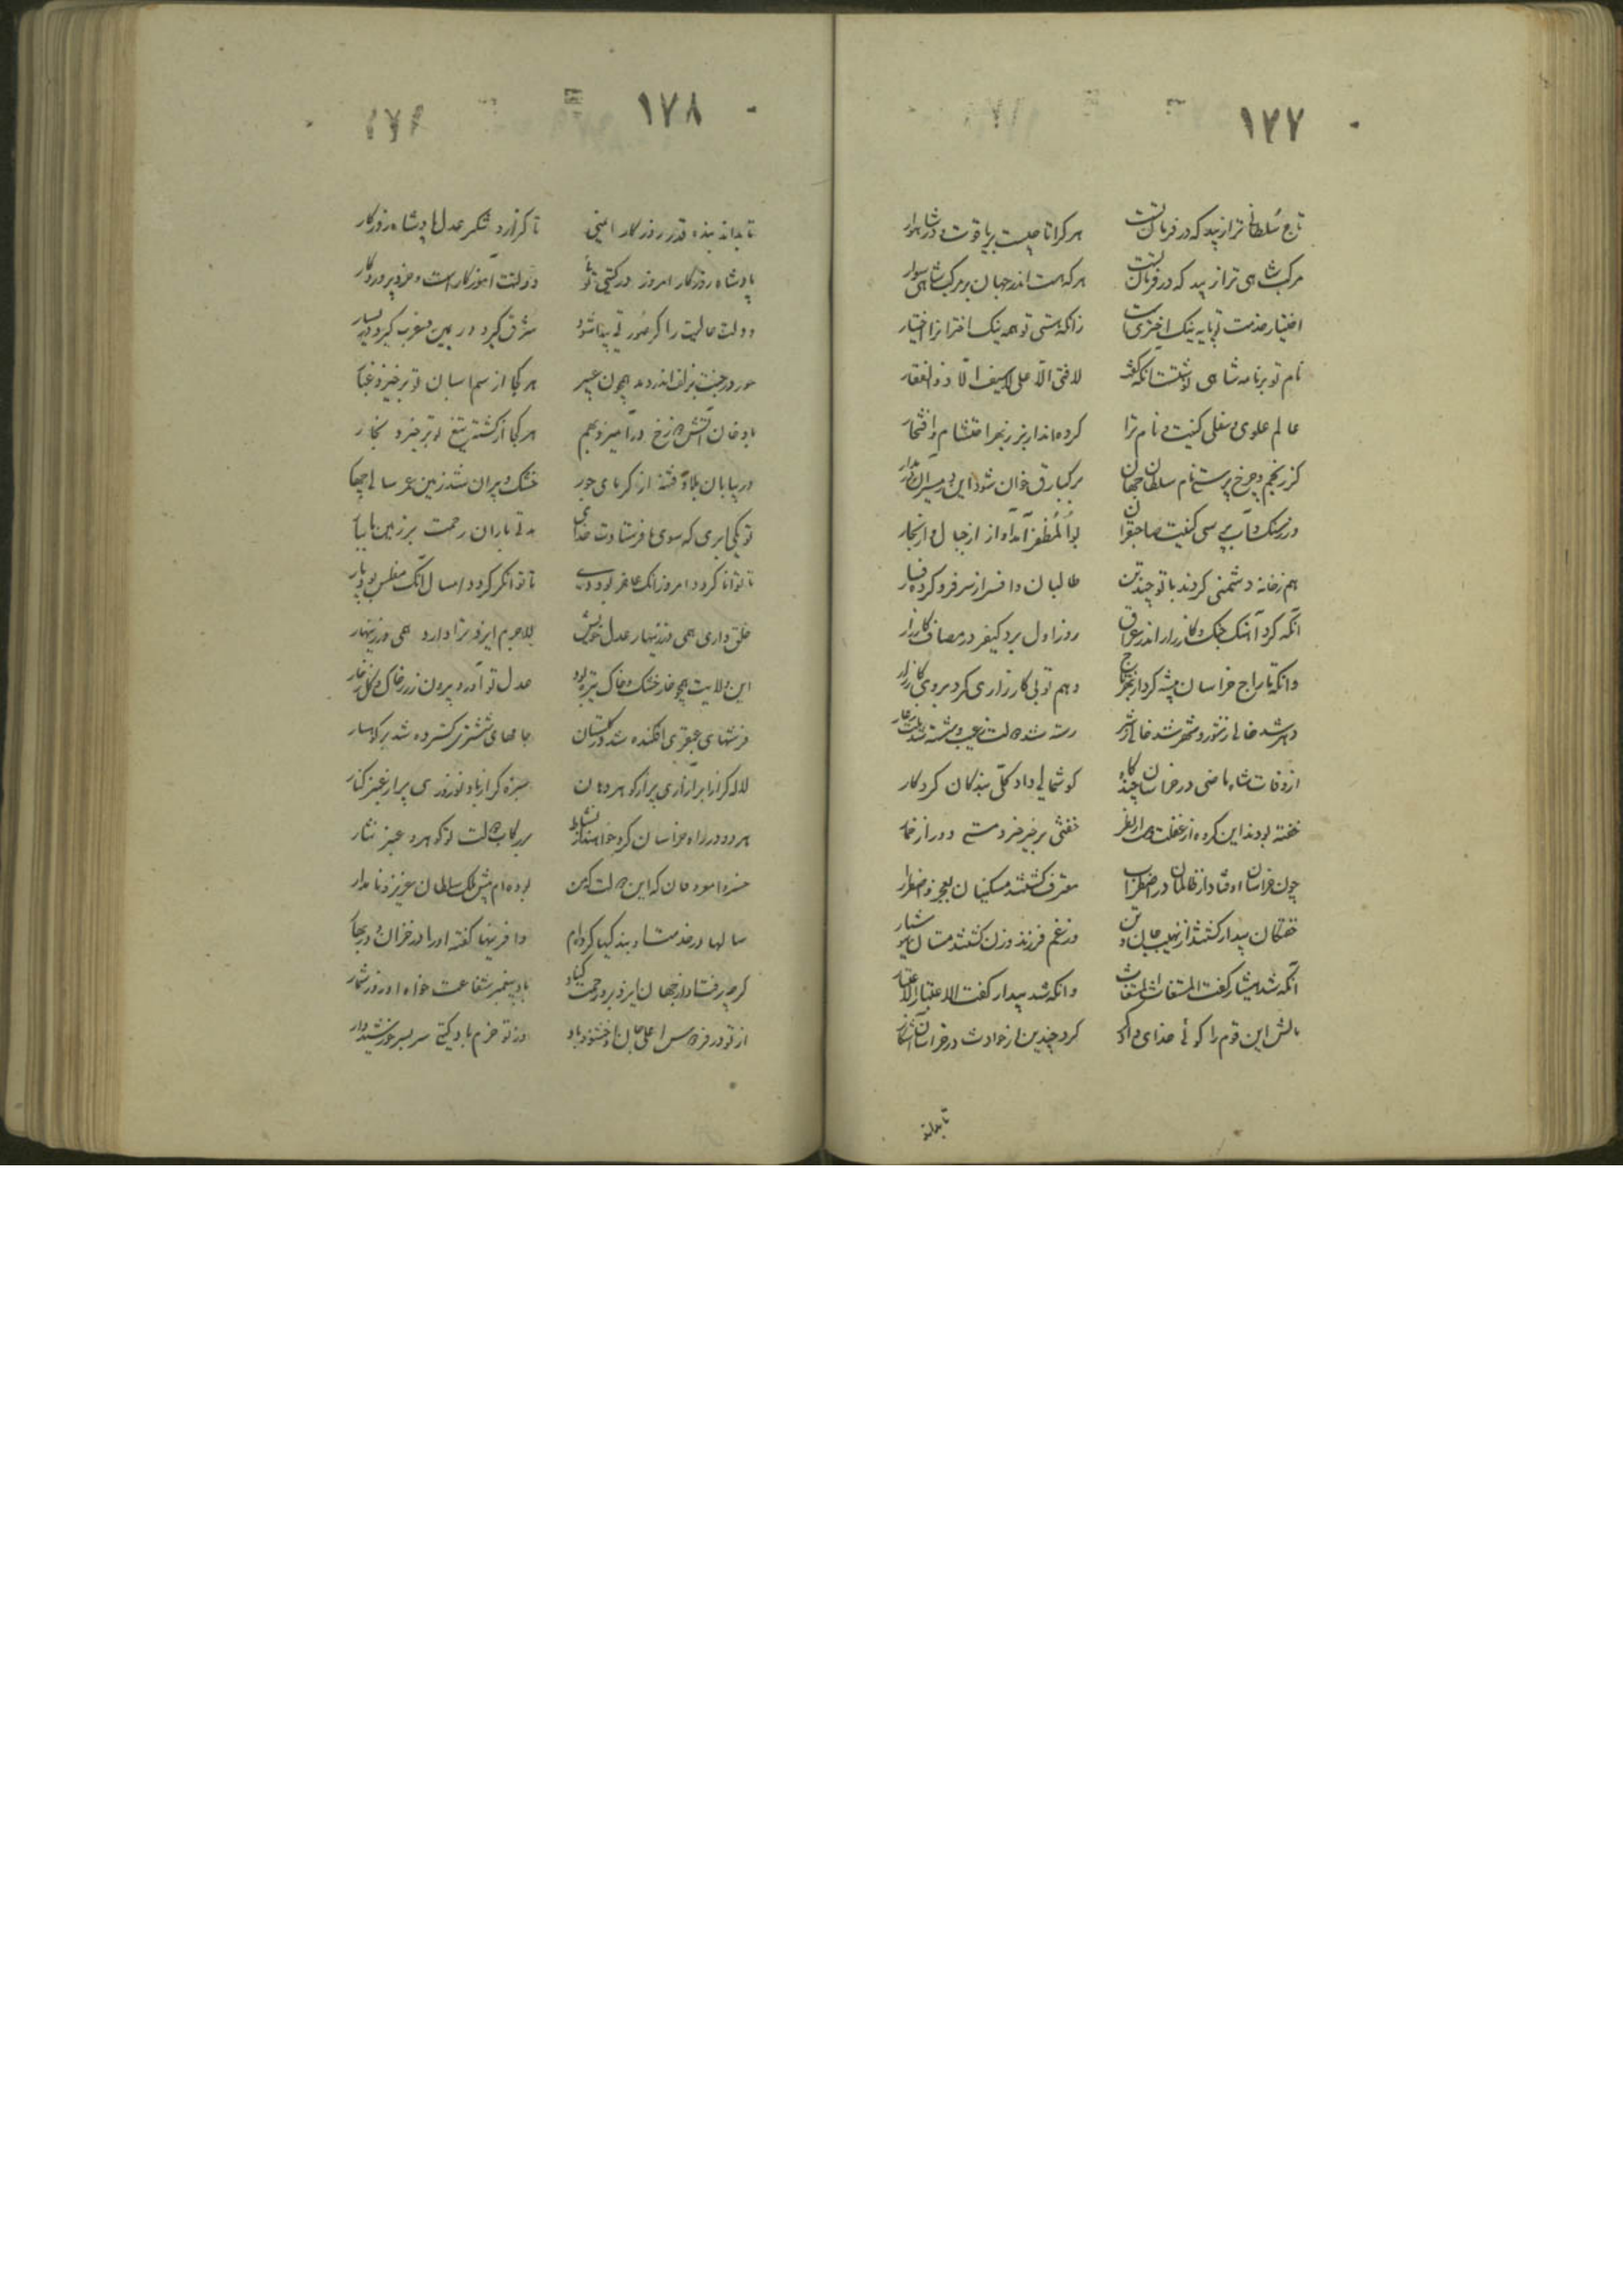 ۱۷۷
تاج سلطانی ترا زیبد که در فرمان تست هر کرا تاجیست پر یاقوت و در شاهوار
مرکب شاهی ترا زیبد که در فرمان تست هر که هست اندر جهان بر مرکب شاهی سوار
اختیار خدمت تو مایه نیک اختریست زانکه هستی تو همه نیک اختران را اختیار
نام تو بر نامه شاهی نوشتست آنکه گفت لا فتی الا علی لا سیف الا ذوالفقار
عالم علوی و سفلی کنیت و نام ترا کرده‌اند از بهر احتشام و افتخار
کز نجم و چرخ پرستش نام سلطان جهان برکیارق خوان شود این
در ز سنگ و آب پرسی کنیت صاحبقران بوالمظفر آید آواز از جبال و از بحار
هم ز خانه دشمنی کردند با تو چند تن طالبان و افسر از سر فرو کرده فسار
آنکه کرد آهنگ جنگ و کارزار اندر عراق روز اول برد کیفر در مصاف کارزار
وانکه تاراج خراسان پیشه کرد از وهم تو بی کارزاری کرد بر وی کارزار
دهر شد خالی ز شور و شهر شد خالی ز شر رسته شد دولت ز عیب و شسته شد ملت ز عار
از وفات شاه ماضی در خراسان چند گاه گوشمالی داد کلی بندگان کردگار
خفته بودند این گروه از غفلت خفتنی بر خیر خیر و مستی دور از خمار
چون خراسان اوفتاد از ظالمان در اضطراب معترف گشتند مسکینان بعجز و اضطرار
خفتگان بیدار گشتند از نهیب جان و تن وز غم فرزند و زن گشتند مستان هوشیار
آنکه شد هشیار گفت المستغاث المستغاث وانکه شد بیدار گفت الاعتبار الاعتبار
مالش این قوم را گوئی خدای دادگر کرد چندین از حوادث در خراسان آشکار
تا بداند
۱۷۸
تا بداند بنده قدر روزگار ایمنی تا گزارد شکر عدل پادشاه روزگار
پادشاه روزگار امروز در گیتی توئی دولتت آموزگار است و خرد پروردگار
دولت عالیت را گر صورتی پیدا شود شرق گیرد در یمین و غرب گیرد در یسار
حور در جنت بزلف اندر دمد همچون عبیر هر کجا از سم اسبان تو برخیزد غبار
با دخان آتش دوزخ در آمیزد بهم هر کجا از کشته تیغ تو برخیزد بخار
در بیابان بلا و فتنه از گرمای جور خشک و ویران شد زمین
تو یکی ابری که سوی ما فرستادت خدای بر زمین ما ببار
تا توانا گردد امروز آنک عاجز بود دی تا توانگر گردد امسال آنک مفلس بود پار
خلق داری همی در زینهار عدل خویش لاجرم ایزد ترا دارد همی در زینهار
این ولایت همچو خار خشک و خاک تیره بود عدل تو آورد بیرون زر ز خاک و گل ز خار
فرشهای عبقری افکنده شد در گلستان جامهای ششتری گسترده شد بر کوهسار
لاله کرد از ابر آزاری پر از گوهر دهان سبزه کرد از باد نوروزی پر از عنبر کنار
هر دو در راه خراسان کرد خواهند از نشاط بر رکاب دولت تو گوهر و عنبر نثار
خسروا که این دولت بوده‌ام پیش ملک سلطان عزیز و نامدار
سالها در خدمت وافرینها گفته او را در خزان و در بهار
گر چه رفت او از جهان ایزد برو رحمت کناد باد پیغمبر شفاعت خواه او روز شمار
از تو در فردوس اعلی جان او خشنود باد وز تو خرم باد گیتی سر بسر